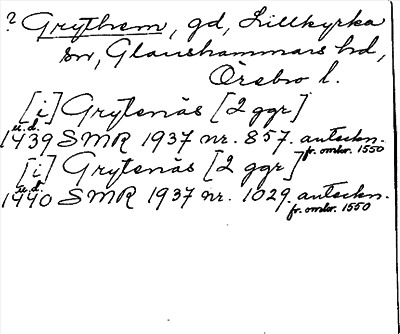 ? Grythem, gd, Lillkyrka
sn, Glanshammars hd,
Örebro l.
[i] Grytenäs [2 ggr]
u.d.
1439 SMR 1937 nr. 857. anteckn.
fr. omkr. 1550
[i] Grytenäs [2 ggr]
u.d.
1440 SMR 1937 nr. 1029. anteckn.
fr. omkr. 1550